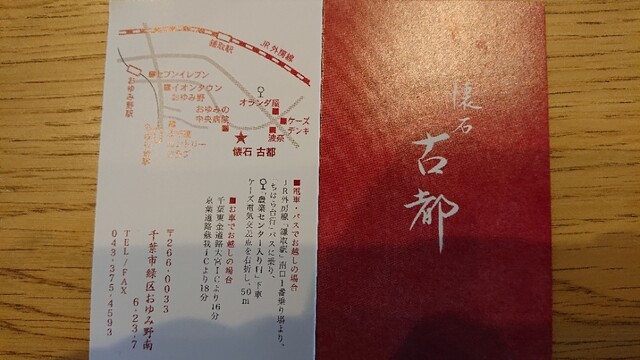 懐石
古都
JR外房線
鎌取駅
セブンイレブン
イオンタウン
おゆみ野
おゆみ野駅
オランダ屋
おゆみの
中央病院
ケーズ
デンキ
波奈
懐石 古都
■電車・バスでお越しの場合
JR外房線「鎌取駅」南口1番乗り場より、
「ちはら台行」バスに乗り、
「農業センター入り口」下車
ケーズ電気交差点を右折し、50m
■お車でお越しの場合
千葉東金道路大宮ICより16分
京葉道路蘇我ICより18分
〒266-0033
千葉市緑区おゆみ野南
6-23-7
TEL/FAX
043-375-4593